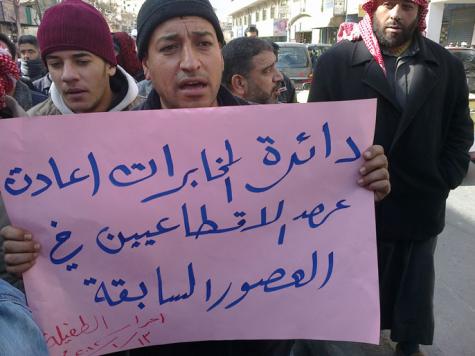 دائرة المخابرات اعادت
عهد الاقطاعيين في
العصور السابقة
احرار الطفيلة